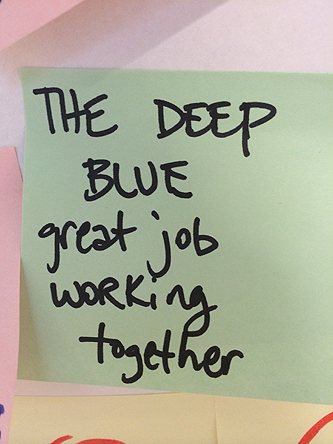 THE DEEP
BLUE
great job
working
together